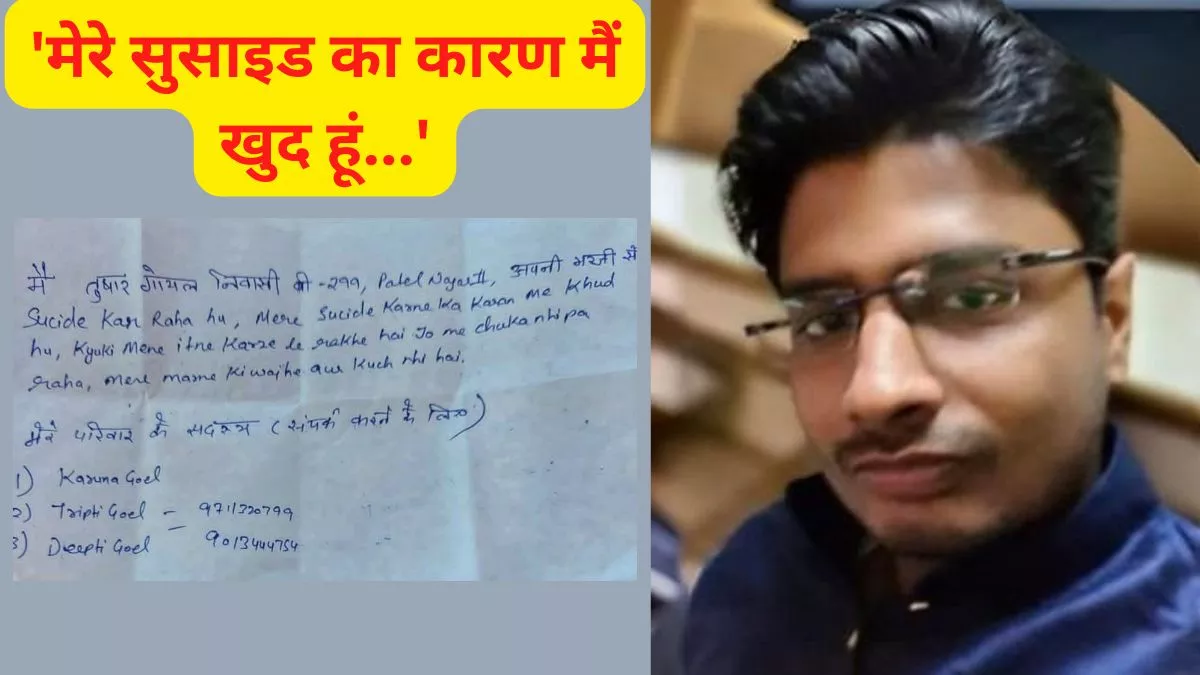 'मेरे सुसाइड का कारण मैं
खुद हूं...'
मै तुषार गोयल निवासी बी -२९९, Patel Nagar II, अपनी मरजी से
Sucide Kar Raha hu, Mere Sucide Karne Ka Karan me Khud
hu, Kyuki Mene itne Karze le rakhe hai Jo me chuka nhi pa
raha, mere marne ki wajhe aur Kuch nhi hai.
मेरे परिवार के सदस्य (संपर्क करने के लिए)
1) Karuna Goel
2) Tripti Goel -
3) Deepti Goel